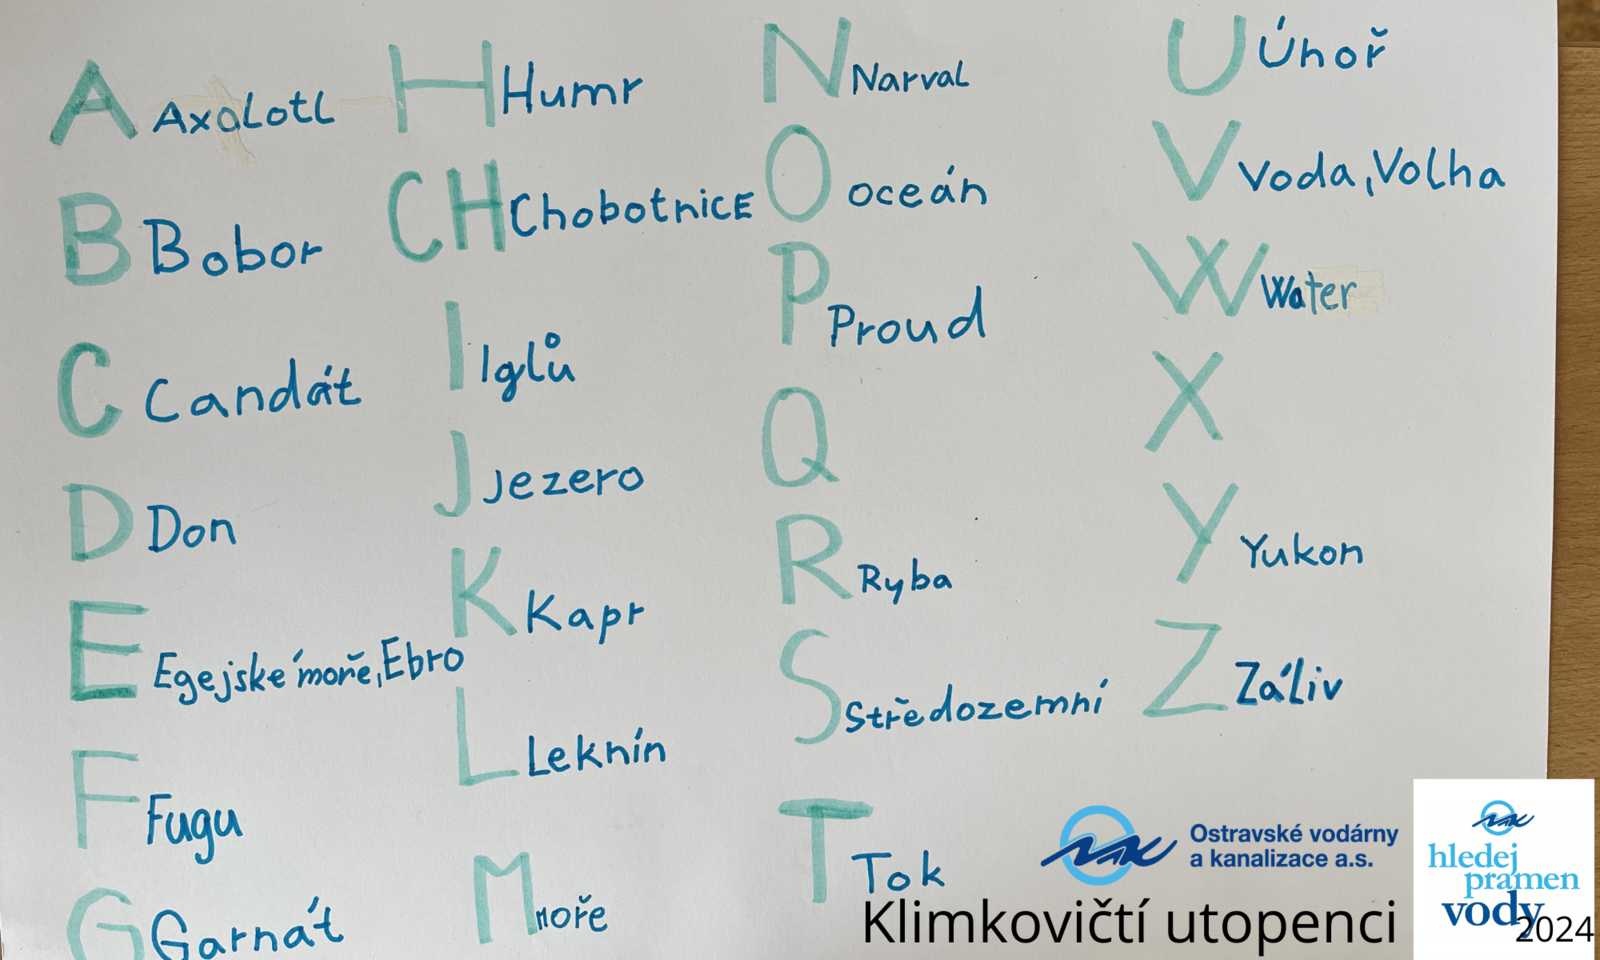 A Axolotl
B Bobor
C Candát
D Don
E Egejské moře, Ebro
F Fugu
G Garnát
H Humr
CH Chobotnice
I Iglů
J Jezero
K Kapr
L Leknín
M moře
N Narval
O oceán
P Proud
Q
R Ryba
S Středozemní
T Tok
U Úhoř
V Voda, Volha
W Water
X
Y Yukon
Z Záliv
OVAK Ostravské vodárny
a kanalizace a.s.
Klimkovičtí utopenci
OVAK
hledej
pramen
vody
2024